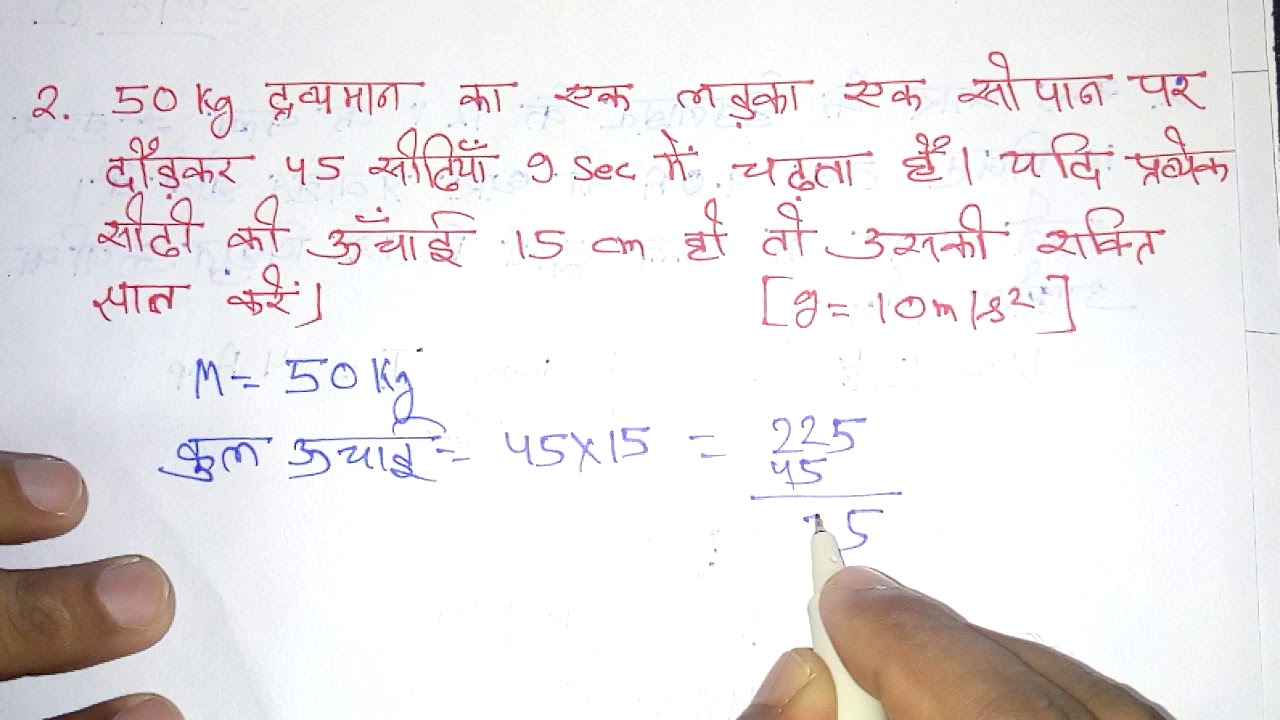 2. 50 kg द्रव्यमान का एक लड़का एक सोपान पर
दौड़कर 45 सीढ़ियाँ 9 sec में चढ़ता है। यदि प्रत्येक
सीढ़ी की ऊँचाई 15 cm हो तो उसकी शक्ति
ज्ञात करें। [g = 10m/s²]
M = 50 Kg
कुल ऊचाई = 45×15 = 225
45
5